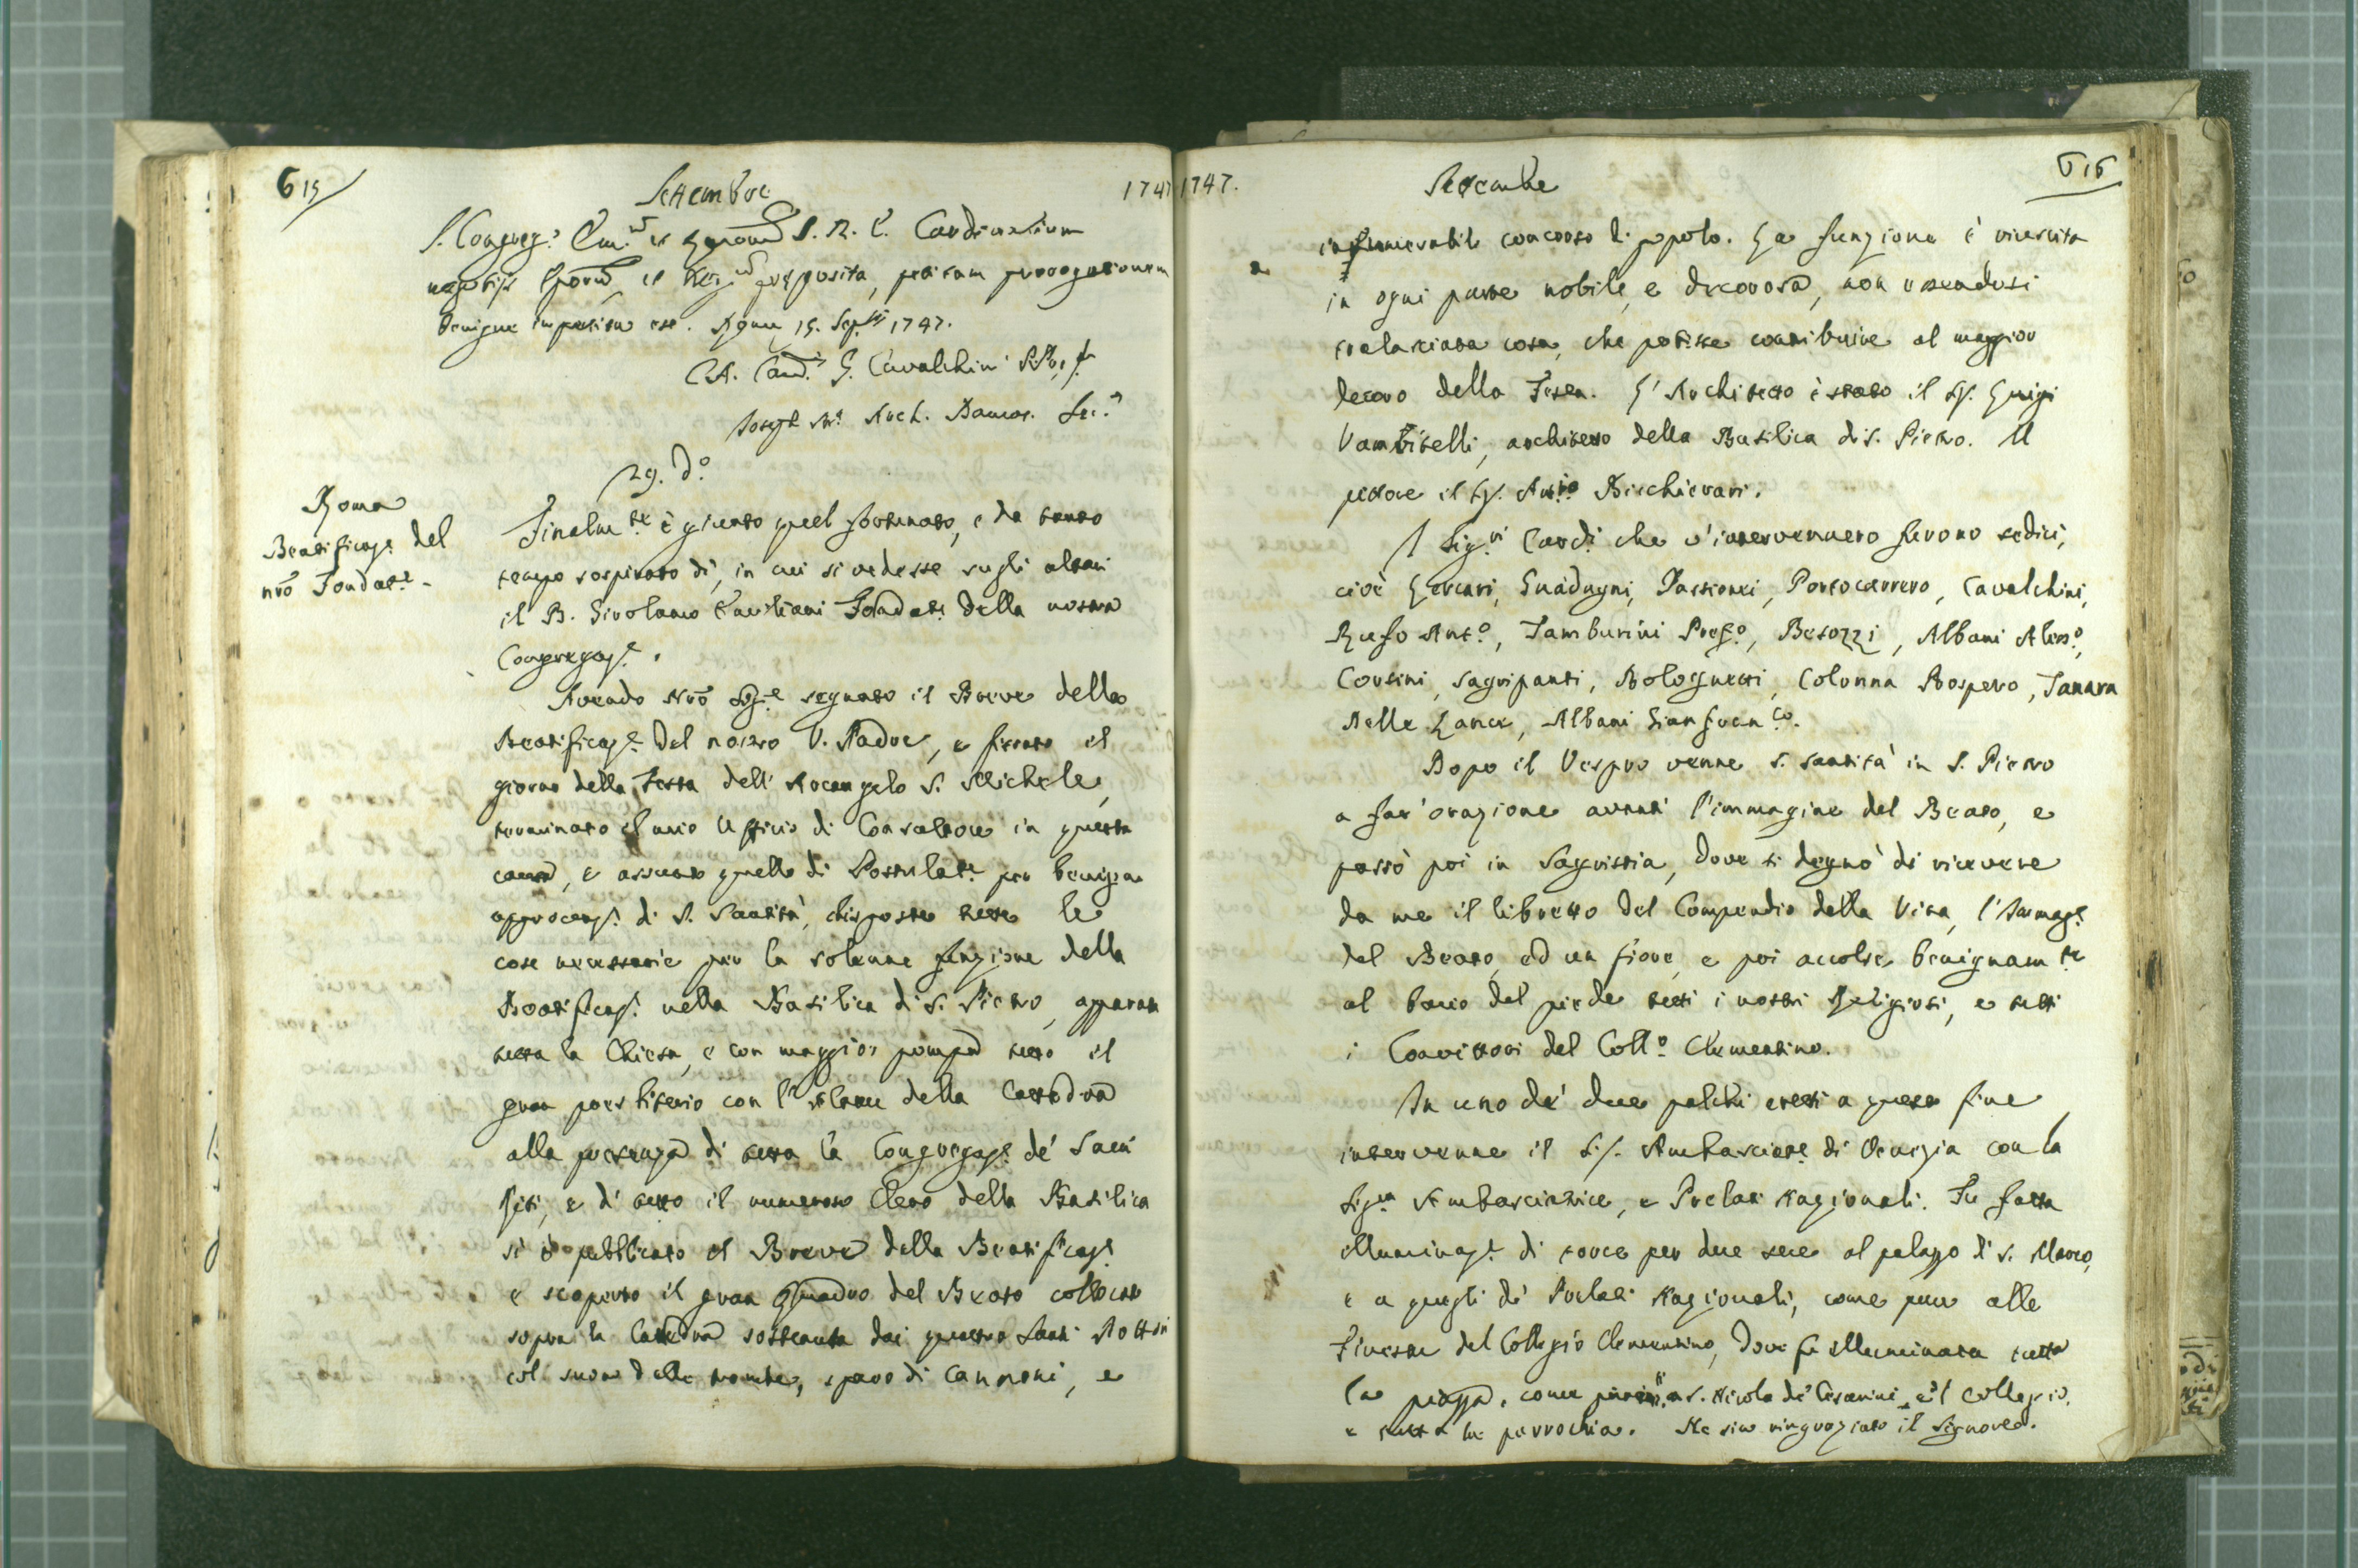 615
Settembre
1747
S. Congreg.e Em.m et S. R. E. Cardinalium
negotijs Eporum, et preposita, petitam prorogationem
benigne impertita est. Romæ 15. Sep.ris 1747.
C. A. Card.is G. Cavalchini
Joseph Arch. Damas. Sec.s
29. d.o
Roma
Beatificaz.e del
nr̄o Fondat.e
Finalm.te è giunto quel fortunato, e da tanto
tempo sospirato dì, in cui si vedesse sugli altari
il B. Girolamo Emiliani Fondat.e della nostra
Congregaz.e.
Avendo Nr̄o Sig.e segnato il Breve della
Beatificaz.e del nostro V. Padre, e fissato il
giorno della Festa dell' Arcangelo S. Michele,
terminato il mio Ufficio di Consultore in questa
causa, e assunto quello di Postulat.e per benigna
approvaz.e di S. Santità, disposte tutte le
cose necessarie per la solenne funzione della
Beatificaz.e nella Basilica di S. Pietro, apparata
tutta la Chiesa, e con maggior pompa tutto il
gran presbiterio con l'Altare della Cattedra
alla presenza di tutta la Congregaz.e de' Sacri
Riti, e di tutto il numeroso Clero della Basilica
si è pubblicato il Breve della Beatificaz.e
e scoperto il gran Quadro del Beato collocato
sopra la Cattedra sostenuta dai quattro Santi Dottori
col suon delle trombe, sparo di cannoni, e
1747.
Settembre
616
innumerabile concorso di popolo. La funzione è riuscita
in ogni parte nobile, e decorosa, non essendosi
tralasciata cosa, che potesse contribuire al maggior
decoro della Festa. L'Architetto è stato il Sig. Luigi
Vanvitelli, architetto della Basilica di S. Pietro. Il
pittore il Sig. Ant.io Bicchierari.
I Sig.ri Card.i che v'intervennero furono sedici,
cioè Lercari, Guadagni, Passionei, Portocarrero, Cavalchini,
Rufo Ant.o, Tamburini Pref.o, Besozzi, Albani Aless.o,
Corsini, Sagripanti, Bolognetti, Colonna Prospero, Tanara
Delle Lance, Albani Gianfran.co.
Dopo il Vespro venne S. Santità in S. Pietro
a far' orazione avanti l'immagine del Beato, e
passò poi in Sagristia, dove si degnò di ricevere
da me il libretto del Compendio della Vita, l'Immag.e
del Beato, ed un fiore, e poi accolse benignam.te
al bacio del piede tutti i nostri Religiosi, e tutti
i Convittori del Coll.o Clementino.
In uno de' due palchi eretti a questo fine
intervenne il Sig. Ambasciat.e di Venezia con la
Sig.ra Ambasciatrice, e Prelati Nazionali. Fu fatta
illuminaz.e di torce per due sere al palazzo di S. Marco,
e a quegli de' Prelati Nazionali, come pure alle
Finestre del Collegio Clementino, dove fu illuminata tutta
la piazza, come a S. Nicola de' Cesarini, e'l Collegio,
e tutta la parrochia. Ne sia ringraziato il Signore.